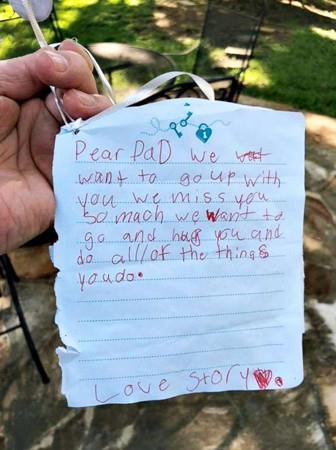 Dear DaD we
want to go up with
you we miss you
So mach we want to
go and hag you and
do all of the things
you do.
Love Story